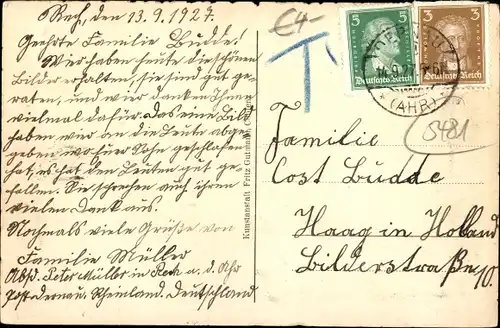 Rech, den 13.9.1927.
Geehrte Familie Budde!
Wir haben heute die schönen
Bilder erhalten, sie sind gut ge-
raten, und wir danken Ihnen
vielmal dafür. Das eine Bild
haben wir an die Leute abge
geben wo Ihr Sohn geschlafen
hat, es hat den Leuten gut ge-
fallen. Sie sprechen auch ihren
vielen Dank aus.
Nochmals viele Grüße von
Familie Müller
Absd. Peter Müller in Rech a. d. Ahr
Post Dernau, Rheinland. Deutschland
Kunstanstalt Fritz
€4-
T
5 5
Deutsches Reich
3 3
Deutsches Reich
(AHR)
5481
Familie
Cost Budde
Haag in Holland
Bilderstraße